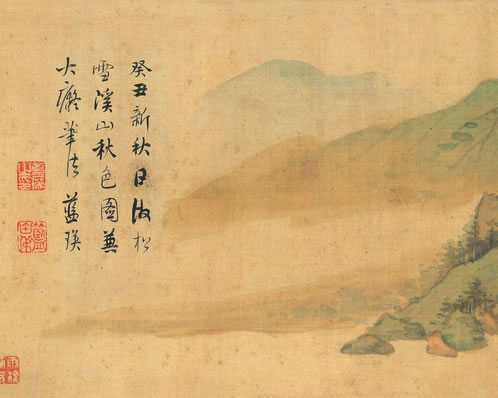 癸丑新秋日倣松
雪溪山秋色圖兼
大癡筆法 藍瑛